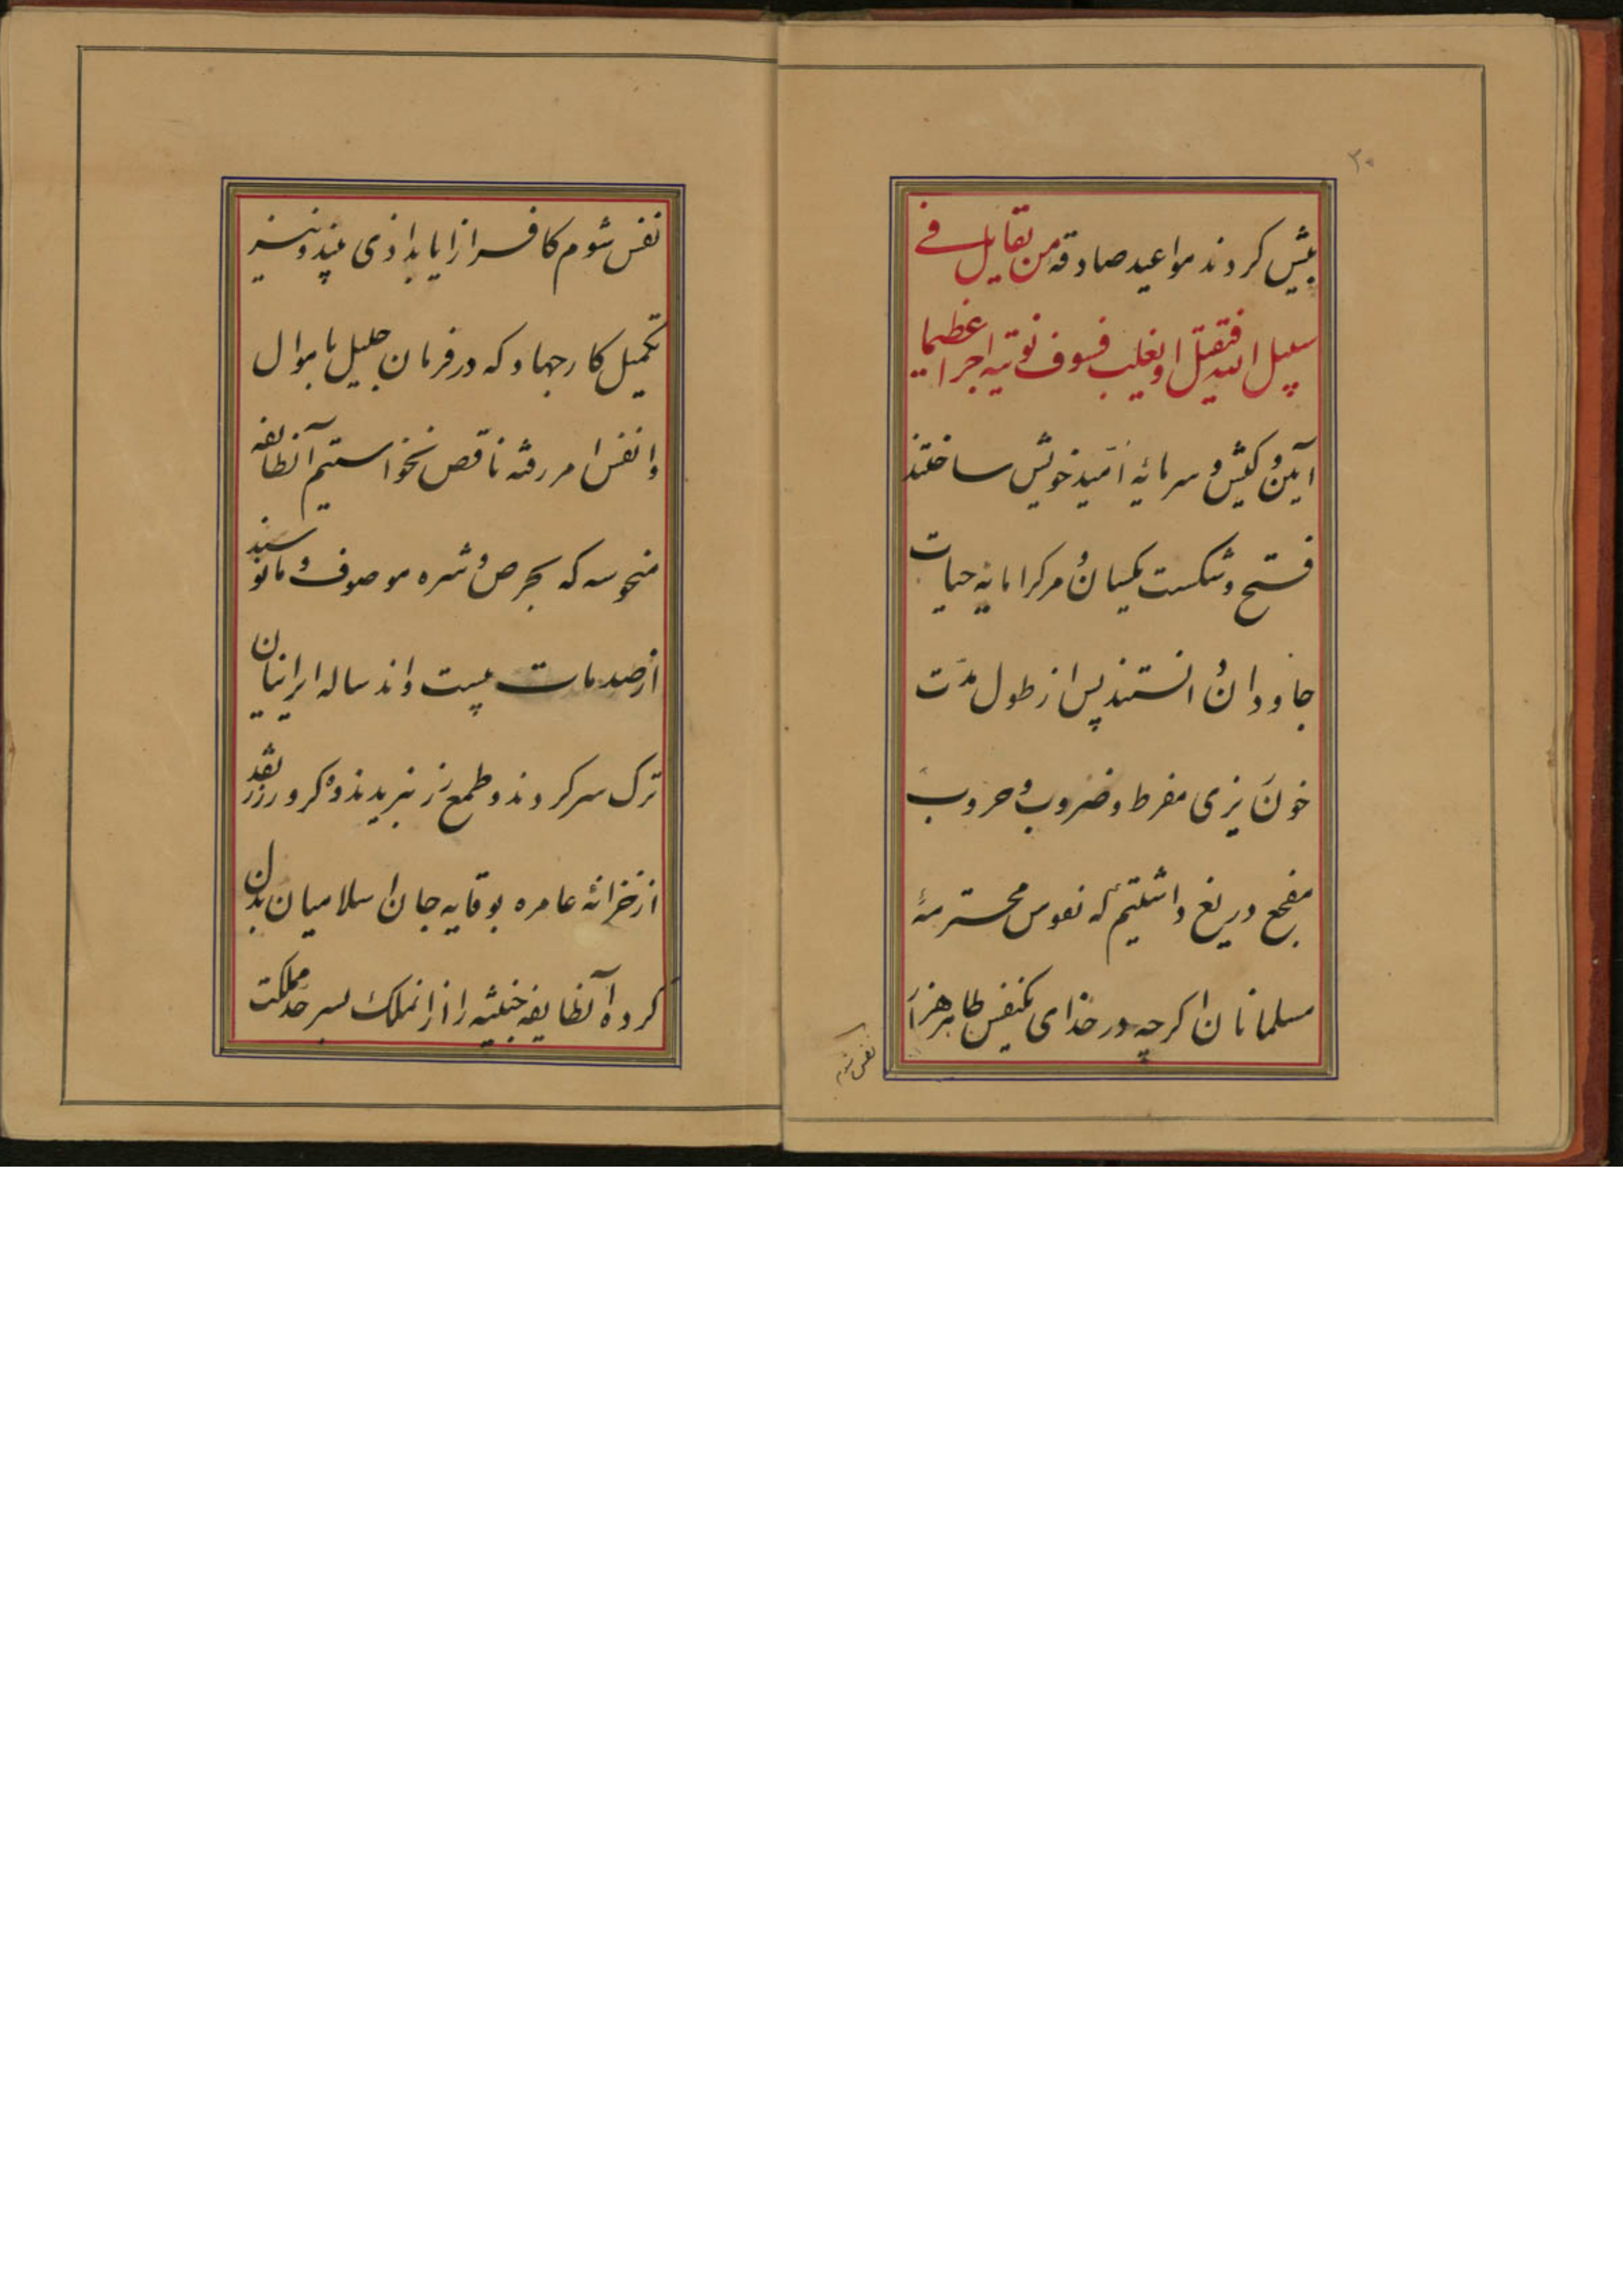 ۳۰
بیش کردند مواعید صادقه من یقاتل فے
سبیل الله فیقتل او یغلب فسوف نوتیه اجرا عظیما
آیین و کیش و سرمایه امید خویش ساختند
فتح و شکست یکسان و مرکرا مایه حیات
جاودان دانستند پس از طول مدّت
خون ریزی مفرط و ضروب و حروب
مفجع دریغ داشتیم که نفوس محترمهٔ
مسلمانان اکرچه در خدای یکنفس طاهر هزار
نفس شوم
نفس شوم کافر ازا یابد اذی بیند و نیز
تکمیل کار جهاد که در فرمان جلیل باموال
و انفس امر رفته ناقص نخواستیم آنطایفه
منحوسه که بحرص و شره موصوف و مانوسند
از صدمات بیست و اند ساله ایرانیان
ترک سر کردند و طمع زر نبریدند ده کرور زر نقد
از خزانهٔ عامره بوقایه جان اسلامیان بذل
کرده آنطایفه خبیثه را از انملک بسر حد مملکت